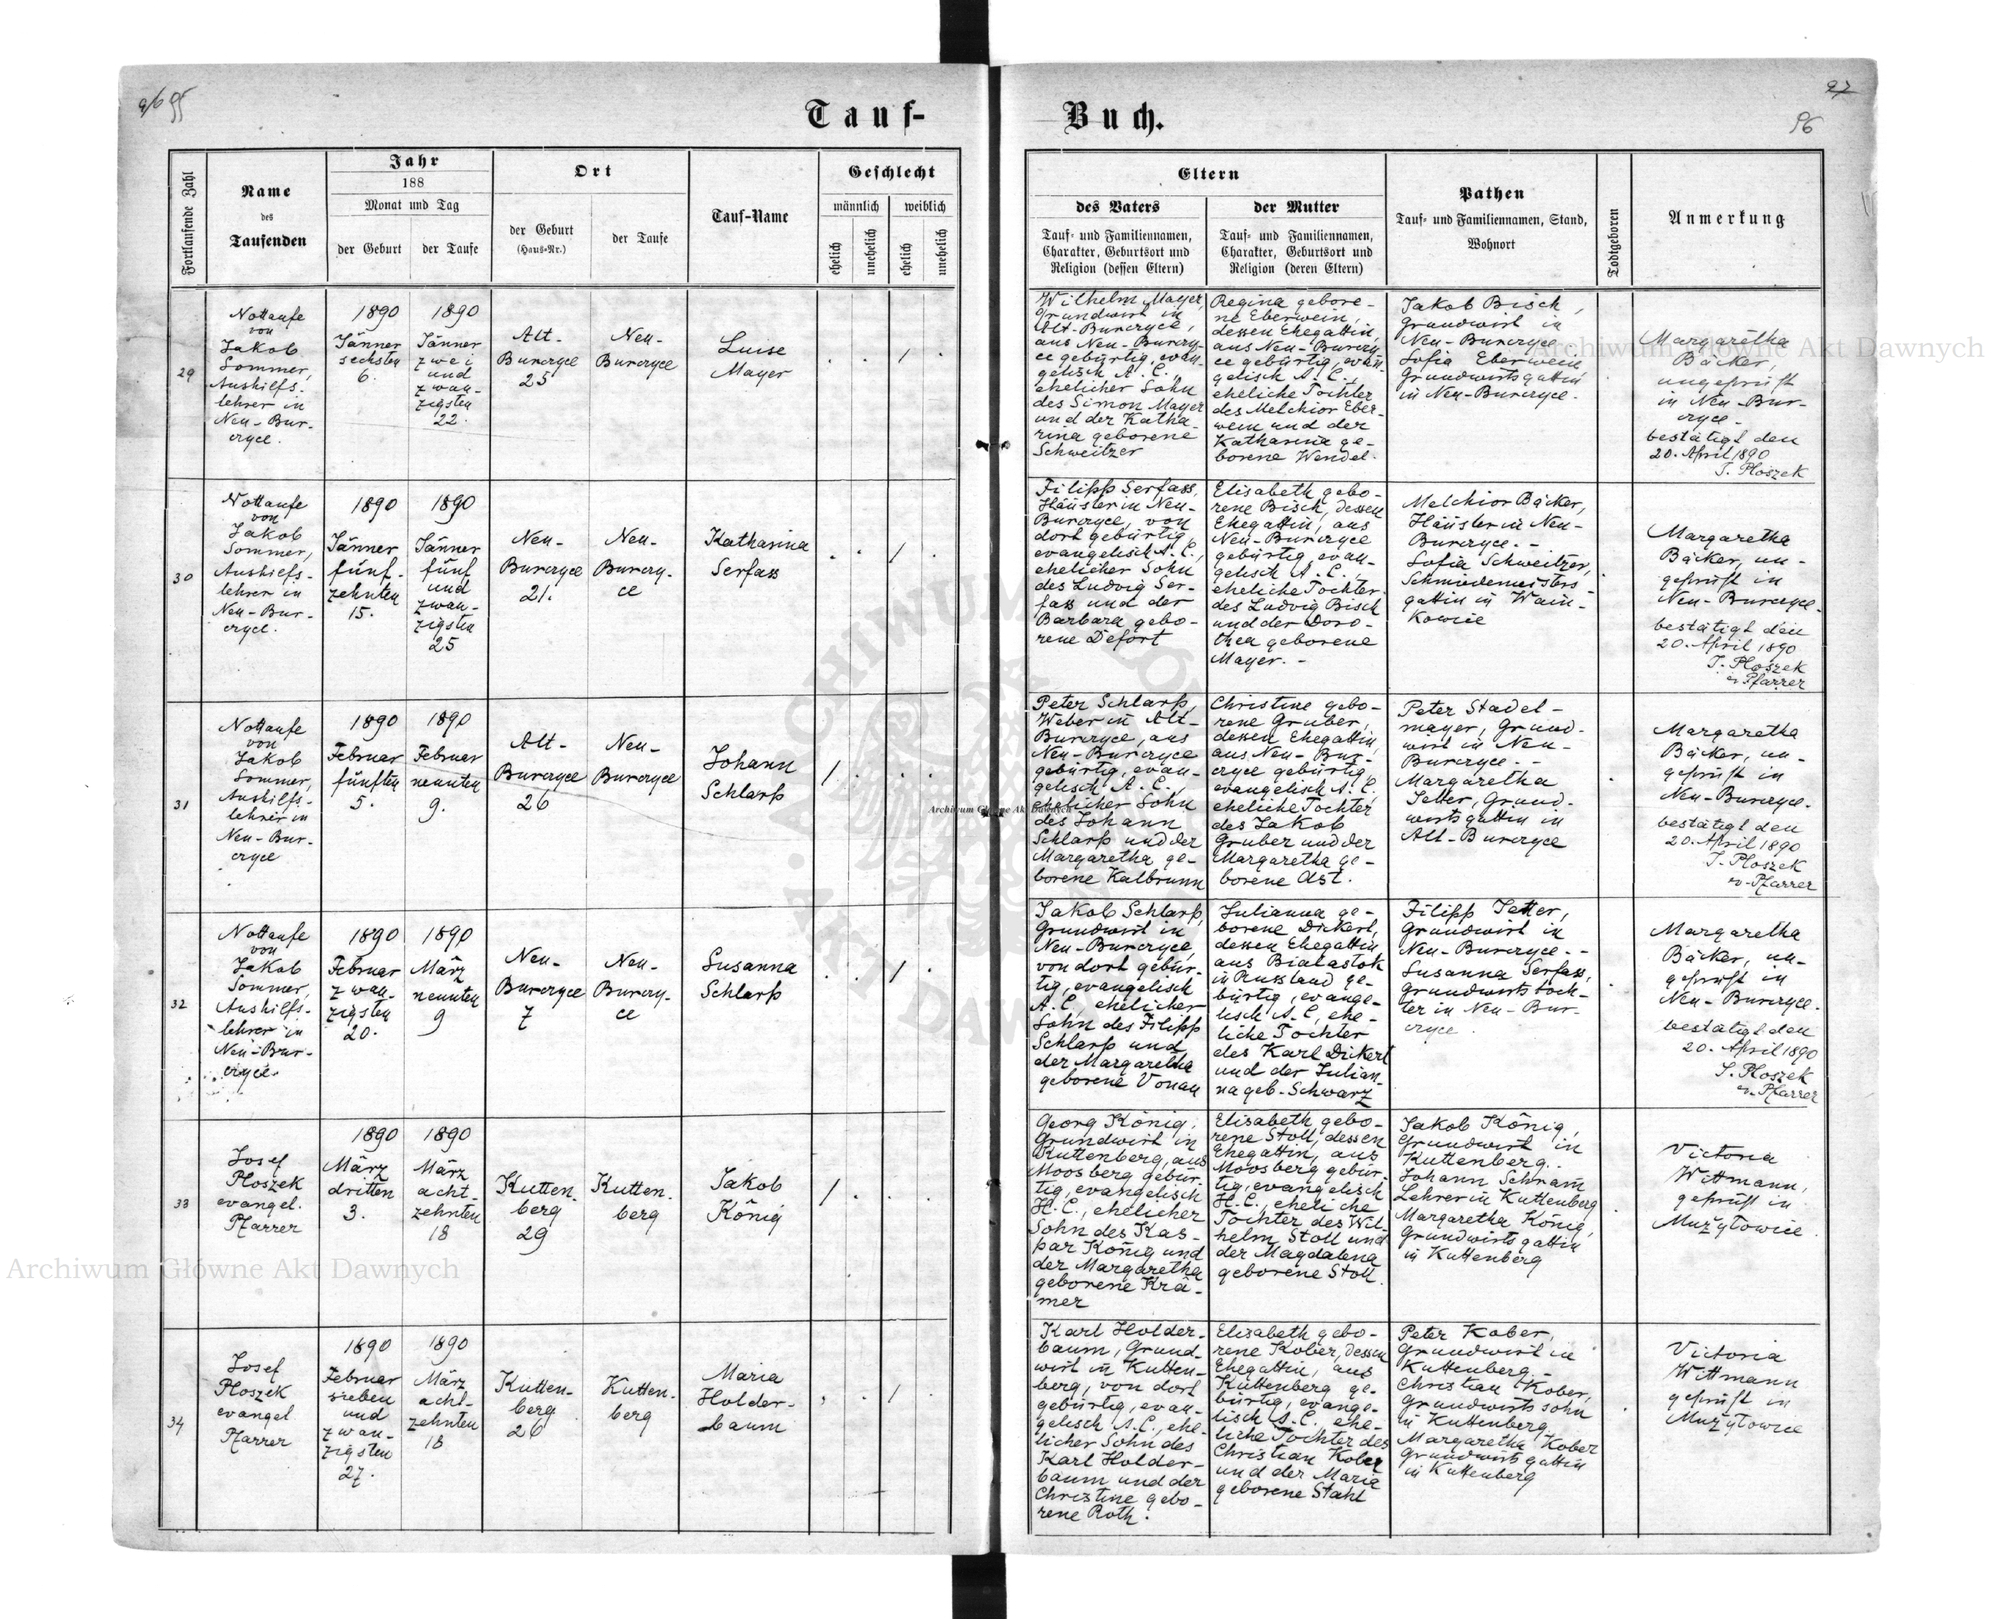 96 95
Tauf-
Buch.
97
96
Fortlaufende Zahl
Name
des
Taufenden
Jahr
188
Monat und Tag
der Geburt
der Taufe
Ort
der Geburt
(Haus-Nr.)
der Taufe
Tauf-Name
Geschlecht
männlich
weiblich
ehelich
unehelich
ehelich
unehelich
Eltern
des Vaters
Tauf- und Familiennamen,
Charakter, Geburtsort und
Religion (dessen Eltern)
der Mutter
Tauf- und Familiennamen,
Charakter, Geburtsort und
Religion (deren Eltern)
Pathen
Tauf- und Familiennamen, Stand,
Wohnort
Todtgeboren
Anmerkung
29
Nottaufe
von
Jakob
Sommer,
Aushilfs-
lehrer in
Neu-Bur-
czyce.
1890
Jänner
sechsten
6.
1890
Jänner
zwei
und
zwan-
zigsten
22.
Alt-
Burczyce
25
Neu-
Burczyce
Luise
Mayer
Wilhelm Mayer,
Grundwirt in
Alt-Burczyce,
aus Neu-Burczy-
ce gebürtig, evan-
gelisch A. C.,
ehelicher Sohn
des Simon Mayer
und der Katha-
rina geborene
Schweitzer
Regina gebore-
ne Eberwein,
dessen Ehegattin,
aus Neu-Burczy-
ce gebürtig, evan-
gelisch A. C.,
eheliche Tochter
des Melchior Eber-
wein und der
Katharina ge-
borene Wendel.
Jakob Bisch,
Grundwirt in
Neu-Burczyce.
Sofia Eberwein
Grundwirtsgattin
in Neu-Burczyce.
Margaretha
Bäcker,
ungeprüft
in Neu-Bur-
czyce.
bestätigt den
20. April 1890
J. Ploszek
30
Nottaufe
von
Jakob
Sommer,
Aushiefs-
lehrer in
Neu-Bur-
czyce.
1890
Jänner
fünf-
zehnten
15.
1890
Jänner
fünf
und
zwan-
zigsten
25
Neu-
Burczyce
21.
Neu-
Burczy-
ce
Katharina
Serfass
Filipp Serfass,
Häusler in Neu-
Burczyce, von
dort gebürtig,
evangelisch A. C.,
ehelicher Sohn
des Ludvig Ser-
fass und der
Barbara gebo-
rene Defort
Elisabeth gebo-
rene Bisch, dessen
Ehegattin, aus
Neu-Burczyce
gebürtig, evan-
gelisch A. C.
eheliche Tochter
des Ludvig Bisch
und der Doro-
thea geborene
Mayer. -
Melchior Bäcker,
Häusler in Neu-
Burczyce. -
Sofia Schweitzer,
Schmiedemeisters
gattin in Wain-
kowice
Margaretha
Bäcker, un-
geprüft in
Neu-Burczyce.
bestätigt den
20. April 1890
J. Ploszek
ev Pfarrer
31
Nottaufe
von
Jakob
Sommer,
Aushilfs-
lehrer in
Neu-Bur-
czyce
1890
Februar
fünften
5.
1890
Februar
neunten
9.
Alt-
Burczyce
26
Neu-
Burczyce
Johann
Schlarp
Peter Schlarp,
Weber in Alt-
Burczyce, aus
Neu-Burczyce
gebürtig, evan-
gelisch A. C.,
ehelicher Sohn
des Johann
Schlarp und der
Margaretha ge-
borene Kalbrunn
Christine gebo-
rene Gruber,
dessen Ehegattin,
aus Neu-Bur-
czyce gebürtig,
evangelisch A. C.,
eheliche Tochter
des Jakob
Gruber und der
Margaretha ge-
borene Ast.
Peter Stadel-
mayer, Grund-
wirt in Neu-
Burczyce. -
Margaretha
Jetter, Grund-
wirtsgattin in
Alt-Burczyce
Margaretha
Bäcker, un-
geprüft in
Neu-Burczyce.
bestätigt den
20. April 1890
J. Ploszek
ev. Pfarrer
32
Nottaufe
von
Jakob
Sommer,
Aushilfs-
lehrer in
Neu-Bur-
czyce.
1890
Februar
zwan-
zigsten
20.
1890
März
neunten
9
Neu-
Burczyce
7
Neu-
Burczy-
ce
Susanna
Schlarp
Jakob Schlarp,
Grundwirt in
Neu-Burczyce,
von dort gebür-
tig, evangelisch
A. C., ehelicher
Sohn des Filipp
Schlarp und
der Margaretha
geborene Vonau
Julianna ge-
borene Dickert,
dessen Ehegattin
aus Bialastok
in Russland ge-
bürtig, evange-
lisch A. C., ehe-
liche Tochter
des Karl Dickert
und der Julian-
na geb. Schwarz
Filipp Jetter,
Grundwirt in
Neu-Burczyce. -
Susanna Serfass,
Grundwirts toch-
ter in Neu-Bur-
czyce.
Margaretha
Bäcker, un-
geprüft in
Neu-Burczyce.
bestätigt den
20. April 1890
J. Ploszek
ev. Pfarrer
33
Josef
Ploszek
evangel.
Pfarrer
1890
März
dritten
3.
1890
März
acht-
zehnten
18
Kutten-
berg
29
Kutten-
berg
Jakob
König
Georg König,
Grundwirt in
Kuttenberg, aus
Moosberg gebür-
tig, evangelisch
H. C., ehelicher
Sohn des Kas-
par König und
der Margaretha
geborene Krä-
mer
Elisabeth gebo-
rene Stoll, dessen
Ehegattin, aus
Moosberg gebür-
tig, evangelisch
H. C., eheliche
Tochter des Wil-
helm Stoll und
der Magdalena
geborene Stoll.
Jakob König,
Grundwirt in
Kuttenberg.
Johann Schram
Lehrer in Kuttenberg
Margaretha König,
Grundwirtsgattin
in Kuttenberg
Victoria
Wittmann,
geprüft in
Mużyłowice.
34
Josef
Ploszek
evangel
Pfarrer
1890
Februar
sieben
und
zwan-
zigsten
27.
1890
März
acht-
zehnten
18
Kutten-
berg
26
Kutten-
berg
Maria
Holder-
baum
Karl Holder-
baum, Grund-
wirt in Kutten-
berg, von dort
gebürtig, evan-
gelisch A. C., ehe-
licher Sohn des
Karl Holder-
baum und der
Christine gebo-
rene Roth.
Elisabeth gebo-
rene Kober, dessen
Ehegattin, aus
Kuttenberg ge-
bürtig, evange-
lisch A. C., ehe-
liche Tochter des
Christian Kober
und der Maria
geborene Stahl
Peter Kober,
Grundwirt in
Kuttenberg.
Christian Kober,
Grundwirts sohn
in Kuttenberg
Margaretha Kober
Grundwirts gattin
in Kuttenberg
Victoria
Wittmann
geprüft in
Mużyłowice
Archiwum Główne Akt Dawnych
Archiwum Główne Akt Dawnych
Archiwum Główne Akt Dawnych